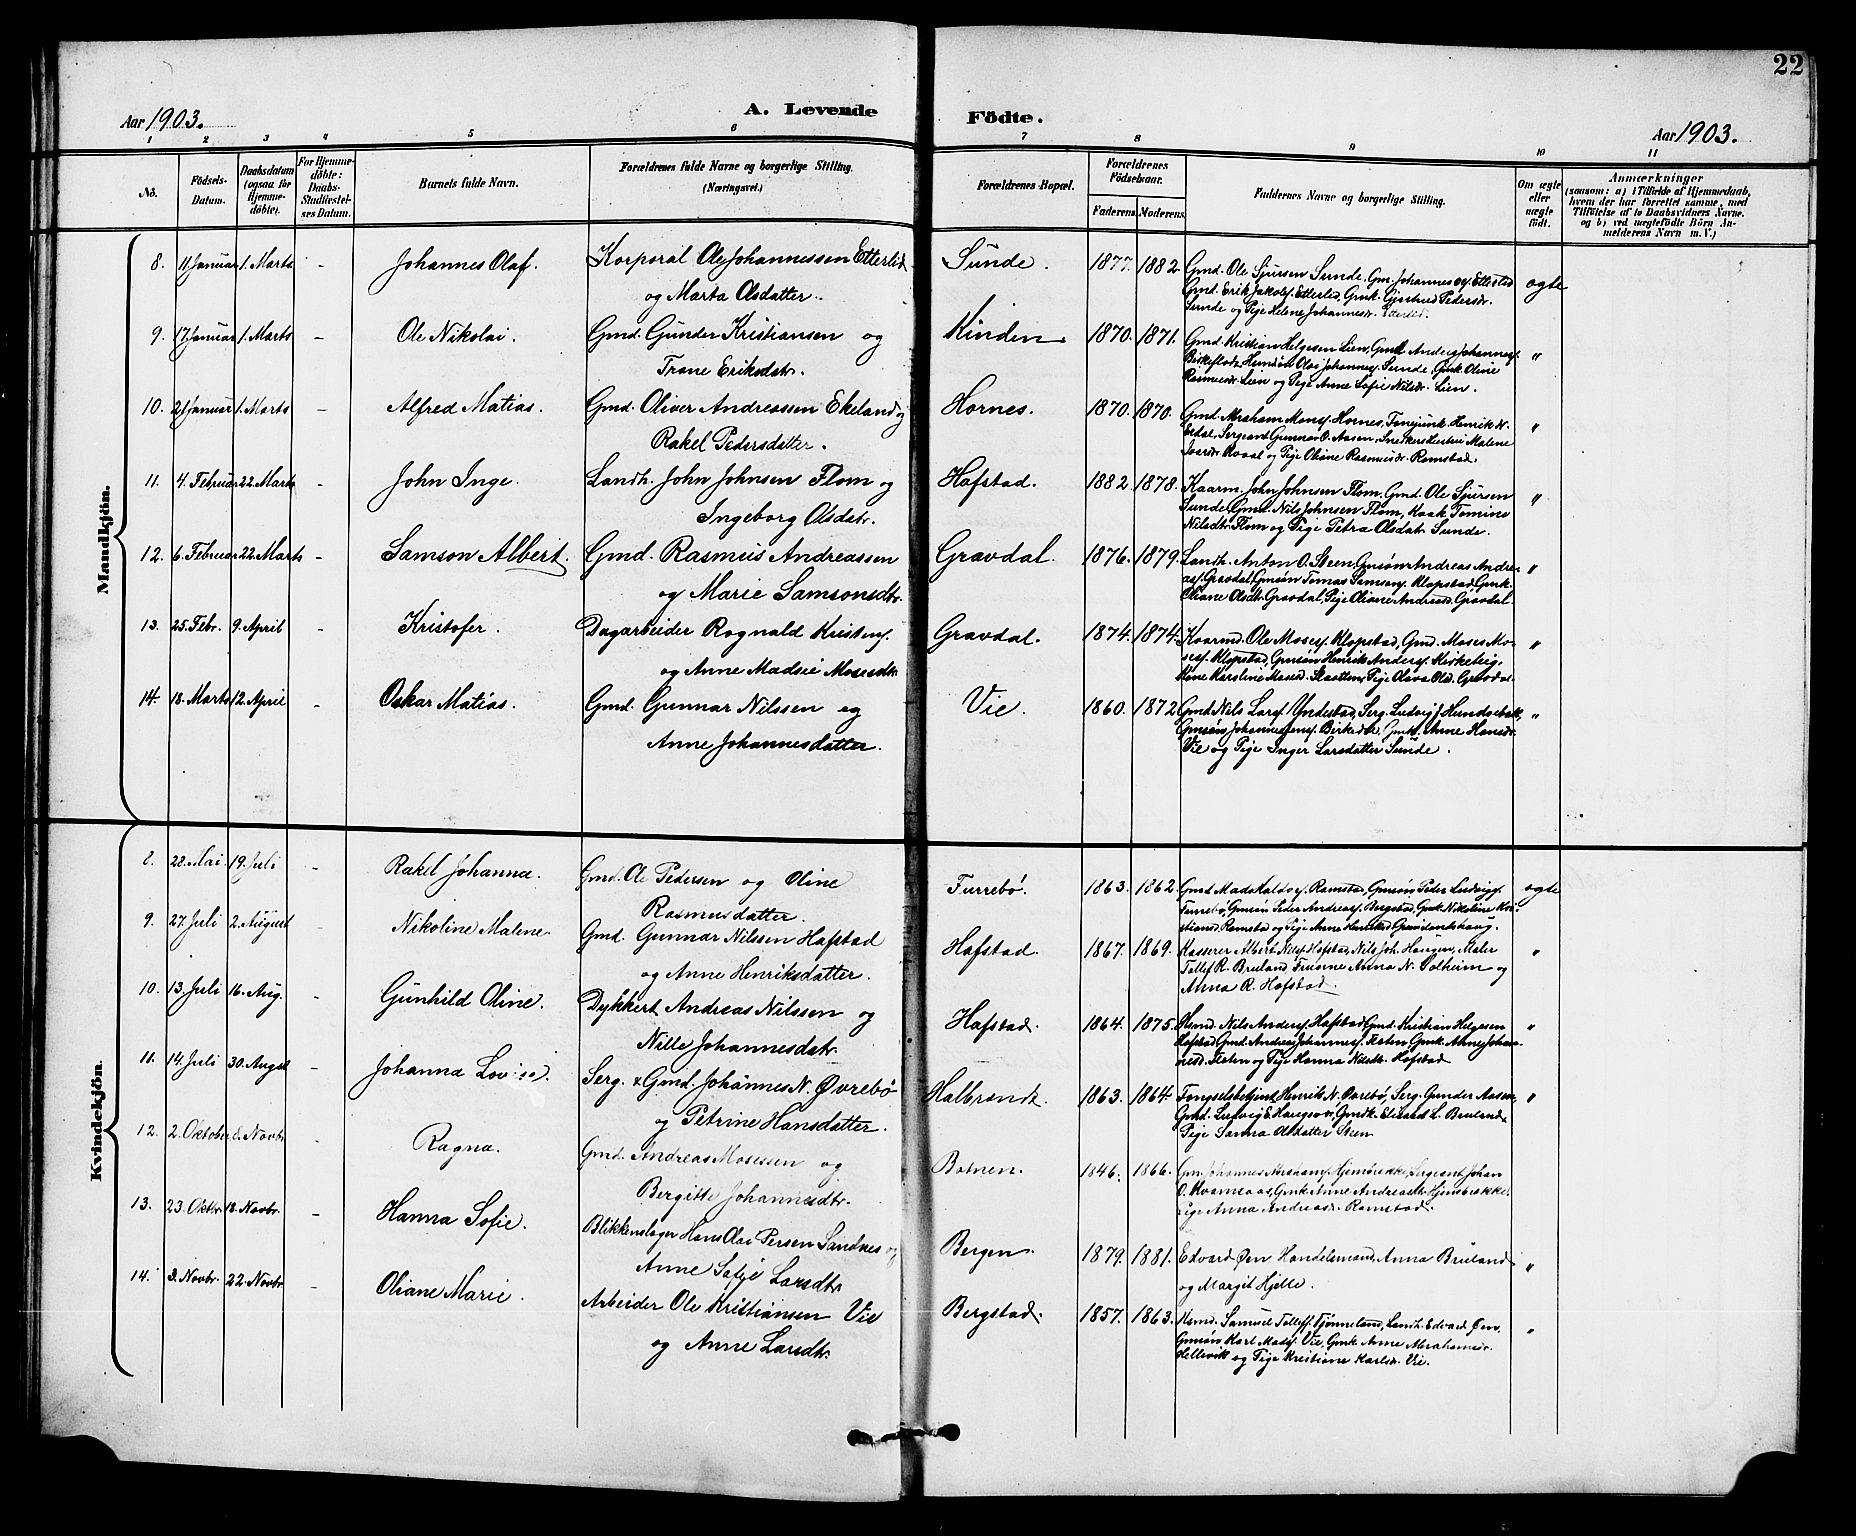 22
Aar 1903.
A. Levende
Födte.
Aar 1903.
1 2 3 4 5 6 7 8 9 10 11
No.
Födsels-Datum.
Daabsdatum (ogsaa for Hjemmedöbte).
For Hjemmedöbte: Daabs-Stadfæstelses Datum.
Barnets fulde Navn.
Forældrenes fulde Navne og borgerlige Stilling. (Næringsvei.)
Forældrenes Bopæl.
Forældrenes Födselsaar.
Faderens. Moderens.
Faddernes Navne og borgerlige Stilling.
Om ægte eller uægte födt.
Anmærkninger
(saasom: a) i Tilfælde af Hjemmedaab, hvem der har forrettet samme, med Tilføielse af to Daabsvidners Navne, og b) ved uægtefödte Börn Anmelderens Navn m. V.)
Mandkjön.
8. 11 Januar 1. Marts - Johannes Olaf. Korporal Ole Johannessen Etterlid
og Marta Olsdatter.
Sunde. 1877. 1882. Gmd. Ole Sjursen Sunde, Gm. Johannes
Gmd. Erik Jakobs. Etterlid, Gmk. Pedersdr.
Sunde og Pige Helene Johannesdr. Etterlid. ægte
9. 17 Januar 1. Marts - Ole Nikolai. Gmd. Gunder Kristiansen og
Trane Eriksdatr.
Kinden 1870. 1871. Gmd. Kristian Helgesen Lien, Gmd. Anders Johanness.
Olai Johanness. Sunde, Gmk. Oline
Rasmusdr. Lien og Pige Anne Sofie Nilsdr. Lien. "
10. 21 Januar 1. Marts - Alfred Matias. Gmd. Oliver Andreassen Ekeland og
Rakel Pedersdatter.
Hornes. 1870. 1870. Gmd. Abraham Monss. Hornes, Henrik N.
Erdal, Sergeant Gunnar O. Aasen, Malene
og Pige Oliane Rasmusdr. Ramstad. "
11. 4. Februar 22 Marts - John Inge. Landh. John Johnsen Flom og
Ingeborg Olsdatr.
Hafstad. 1882. 1878. Kaarm. John Johnsen Flom, Gmd. Ole Sjursen
Sunde, Gmd. Nils Johnsen Flom, Tomine
Nilsdtr. Flom og Pige Petra Olsdatr Sunde. "
12. 6. Februar 22 Marts - Samson Albert. Gmd. Rasmus Andreassen
og Marie Samsonsdtr.
Gravdal. 1876. 1879. Landh. Anton O. Steen, Gmsøn Andreas Andre-
as. Gravdal, Gmsøn Tomas Samsons. Klopstad, Gmk.
Oliane Olsdtr. Gravdal, Pige Oliane Andreasd. Gravdal. "
13. 25. Febr. 9. April - Kristofer. Dagarbeider Rognald Kristens.
og Anne Madsie Mosesdtr.
Gravdal. 1874. 1874. Kaarmd. Ole Moses. Klopstad, Gmd. Moses Mo-
ses. Klopstad, Gmsøn Henrik Anders. Kirketeig,
Pige Olava Olsd. Gravdal. "
14. 18. Marts 12 April - Oskar Matias. Gmd. Gunnar Nilssen og
Anne Johannesdatter.
Vie. 1860. 1872. Gmd. Nils Lars. Undestad, Serg. Ludvig J. Hundsebak,
Gmsøn Johannes Birkedal, Gmk. Anne Hansdr.
Vie og Pige Inger Larsdatter Sunde. "
Kvindekjön.
8. 28. Mai 19. Juli - Rakel Johanna. Gmd. Ole Pedersen og Oline
Rasmusdatter.
Furrebø. 1863. 1862. Gmd. Mads Ramstad, Gmsøn Peder Ludvigs.
Furrebø, Gmsøn Peder Andreas. Bergstad, Gmk. Nikoline Kri-
stiansd. Ramstad og Pige Anna ægte
9. 27. Juli 2. August - Nikoline Malene. Gmd. Gunnar Nilssen Hafstad
og Anne Henriksdatter.
Hafstad. 1867. 1869. Kasserer Albert Nilss. Hafstad, Nils Joh. Haugen, Maler
Tollef R. Bruland, Fruerne Anna N. Solheim og
Anna R. Hafstad. "
10. 13. Juli 16. Aug. - Gunhild Oline. Dykkert Andreas Nilssen og
Nille Johannesdatr.
Hafstad. 1864. 1875. Nils Anders. Hafstad, Gmd. Kristian Helgesen
Hafstad, Gmd. Andreas Johanness. Gmk. Anne Johan-
nesd. og Pige Hanna Nilsdtr. Hafstad "
11. 14. Juli 30. Augst - Johanna Lovisa. Serg. & Gmd. Johannes N. Øvrebø
og Petrine Hansdatter.
Halbrændt. 1863. 1864. Fængselsbetjent Henrik N. Øvrebø, Serg. Gunder Aasen,
Gmd. Ludvig E. Gmdk. L. Bruland,
Pige Sanna Olsdatter Steen. "
12. 2. Oktober 8. Novbr - Ragna. Gmd. Andreas Mosessen og
Bergitte Johannesdtr.
Botnen. 1846. 1866. Gm. Johannes Abrahams. Sergeant Johan
O. Kvamsaas, Gmk. Anne Andreasdtr
Pige Anna Andreasdr. Ramstad. "
13. 23. Oktbr 18. Novbr. - Hanna Sofie. Blikkenslager Hans Olai Persen Sandnes og
Anne Sofie Larsdtr
Bergen. 1879. 1881. Edvard Øen Handelsmand, Anna Bruland
og Margit Hjelle. "
14. 3. Novbr. 22. Novbr - Oliane Marie. Arbeider Ole Kristiansen Vie
og Anne Larsdtr.
Bergstad. 1857. 1863. Samuel Tollefs. Tjønneland, Landh. Edvard Øen,
Gmsøn Karl Mads. Vie, Gmk. Anne Abrahamsdr.
Hellevik og Pige Kristiane Karlsdr. Vie. "